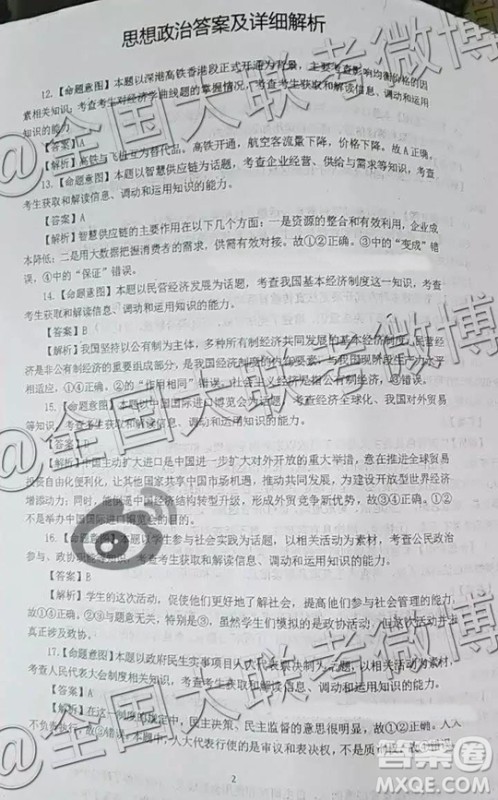 思想政治答案及详细解析
12.【命题意图】本题以深港高铁香港段正式开通为背景，主要考查影响均衡价格的因
素相关知识，考查考生对经济学曲线题的掌握情况，考查考生获取和解读信息、调动和运用
知识的能力。
【答案】A
【解析】高铁与飞机互为替代品。高铁开通，航空客流量下降，价格下降，故A正确。
13.【命题意图】本题以智慧供应链为话题，考查企业经营、供给与需求等知识，考查
考生获取和解读信息、调动和运用知识的能力。
【答案】A
【解析】智慧供应链的主要作用在以下几个方面：一是资源的整合和有效利用，企业成
本降低；二是用大数据把握消费者的需求，供需有效对接。故①②正确。③中的“变成”错
误，④中的“保证”错误。
14.【命题意图】本题以民营经济发展为话题，考查我国基本经济制度这一知识，考查
考生获取和解读信息、调动和运用知识的能力。
【答案】B
【解析】我国坚持以公有制为主体，多种所有制经济共同发展的基本经济制度，民营
经济是非公有制经济的重要组成部分，是我国经济制度的
适应，①④正确。②的“作用相同”错误，社会主义经济制度
15.【命题意图】本题以中国国际进口博览会为话题，考查经济全球化、我国对外贸易
等知识，考查考生获取和解读信息、调动和运用知识的能力。
【答案】D
【解析】中国主动扩大进口是中国进一步扩大对外开放的重大举措，意在推进全球贸易
投资自由化便利化，让其他国家共享中国市场机遇，推动共同发展，为建设开放型世界经济
增添动力；同时，能倒逼中国经济结构转型升级，形成外贸竞争新优势，故③④正确。①②
不是举办中国国际进口博览会的目的。
16.【命题意图】本题以学生参与社会实践为话题，以相关活动为素材，考查公民政治
参与、政协
考查考生获取和解读信息、调动和运用知识的能力。
【答案】B
【解析】学生的这次活动，促使他们更好地了解社会，提高他们参与社会管理的能力，
故①④正确。②③与题意无关，特别是③，虽然学生们模拟的是政协活动，但这次活动并未
真正涉及政协。
17.【命题意图】本题以政府民生实事项目人大代表票决制为主题，以相关活动为素材，
考查人民代表大会制度相关知识，考查考生获取和解读信息、调动和运用知识的能力。
【答案】A
【解析】在这一制度的规定中，民主决策、民主监督的意思很明显，故①②正确。人大
不负责执行，故③错误；本题中，人大代表行使的是审议和表决权，不是质询权，故④错误。
2
@全国大联考微博
答案圈
MXQE.COM